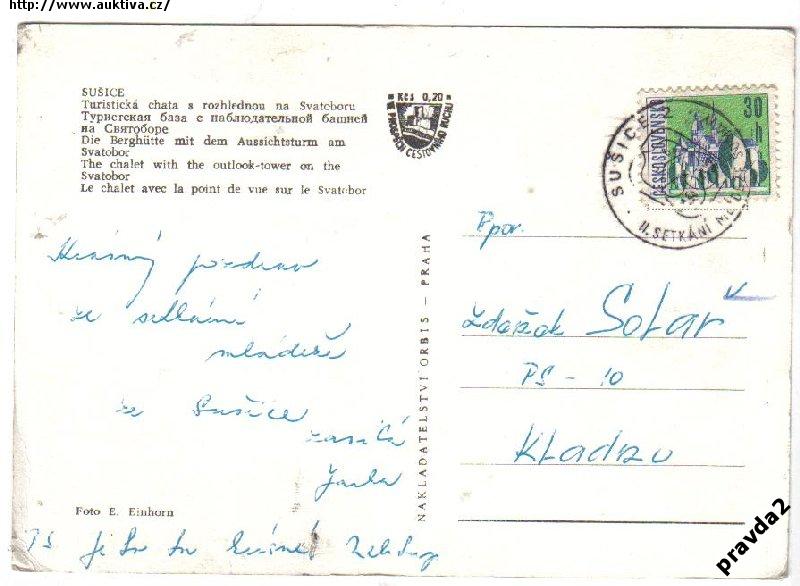 http://www.auktiva.cz/
SUŠICE
Turistická chata s rozhlednou na Svatoboru
Туристская база с наблюдательной башней
на Святоборе
Die Berghütte mit dem Aussichtsturm am
Svatobor
The chalet with the outlook-tower on the
Svatobor
Le chalet avec la point de vue sur le Svatobor
Kčs 0,20
VE PROSPĚCH CESTOVNÍHO RUCHU
30 h
ČESKOSLOVENSKO
SUŠICE
II. SETKÁNÍ
Krásný pozdrav
ze setkání
mládeže
ze Sušice
zasílá
Jarda
PS
Foto E. Einhorn
NAKLADATELSTVÍ ORBIS — PRAHA
Ppor.
Zdeněk Solař
PS - 10
Kladno
pravda2